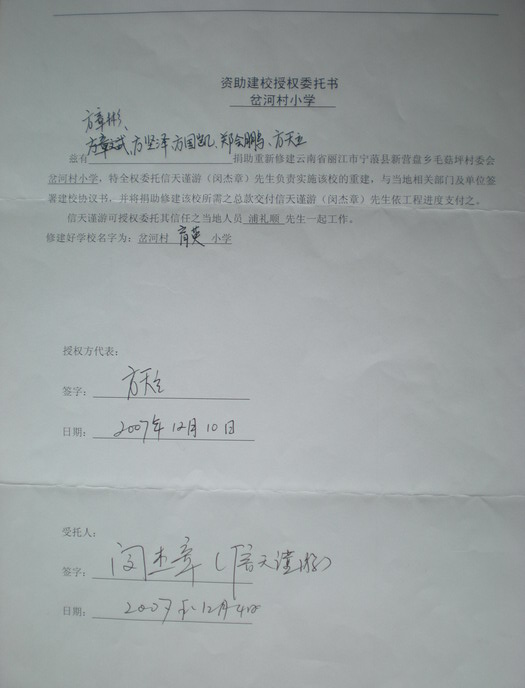 资助建校授权委托书
岔河村小学
方章彬
方章斌、方坚泽、方国凯、郑会鹏、方天立
兹有 捐助重新修建云南省丽江市宁蒗县新营盘乡毛菇坪村委会
岔河村小学,特全权委托信天谨游(闵杰章)先生负责实施该校的重建,与当地相关部门及单位签
署建校协议书,并将捐助修建该校所需之总款交付信天谨游(闵杰章)先生依工程进度支付之。
信天谨游可授权委托其信任之当地人员 浦礼顺 先生一起工作。
修建好学校名字为:岔河村 育英 小学
授权方代表:
签字: 方天立
日期: 2007年12月10日
受托人:
签字: 闵杰章(信天谨游)
日期: 2007年12月